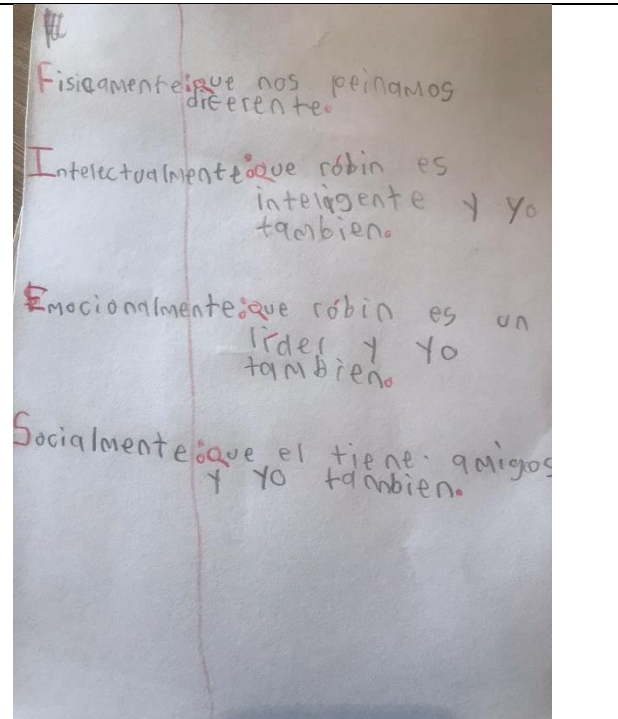 Fisicamente:que nos peinamos
diferente.
Intelectualmente:que róbin es
inteligente y yo
tambien.
Emocionalmente:que róbin es un
lider y yo
tambien.
Socialmente:que el tiene amigos
y yo tambien.